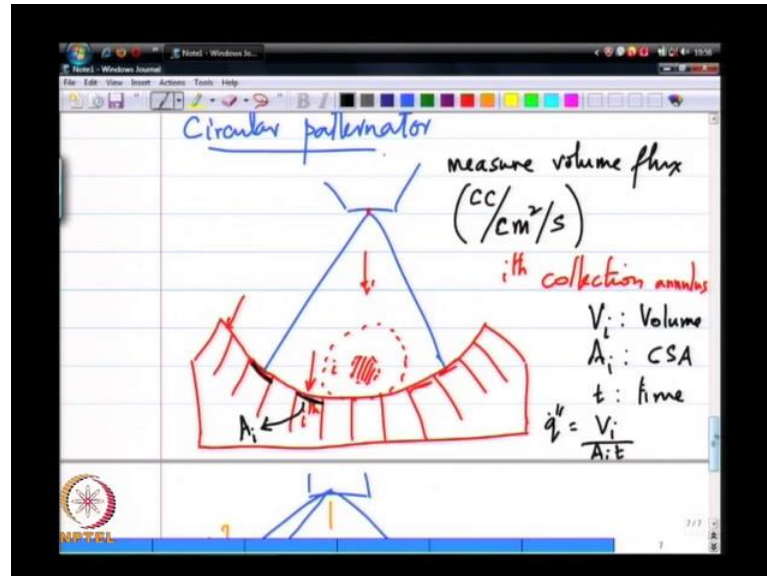 Note1 - Windows Jo...
10:56
Note1 - Windows Journal
File Edit View Insert Actions Tools Help
B I
Circular patternator
measure volume flux
(CC/cm²/s)
ith collection annulus
Vi : Volume
Ai : CSA
t : time
q̇" = Vi/Ait
i
ith
Ai
7/7
7
NPTEL